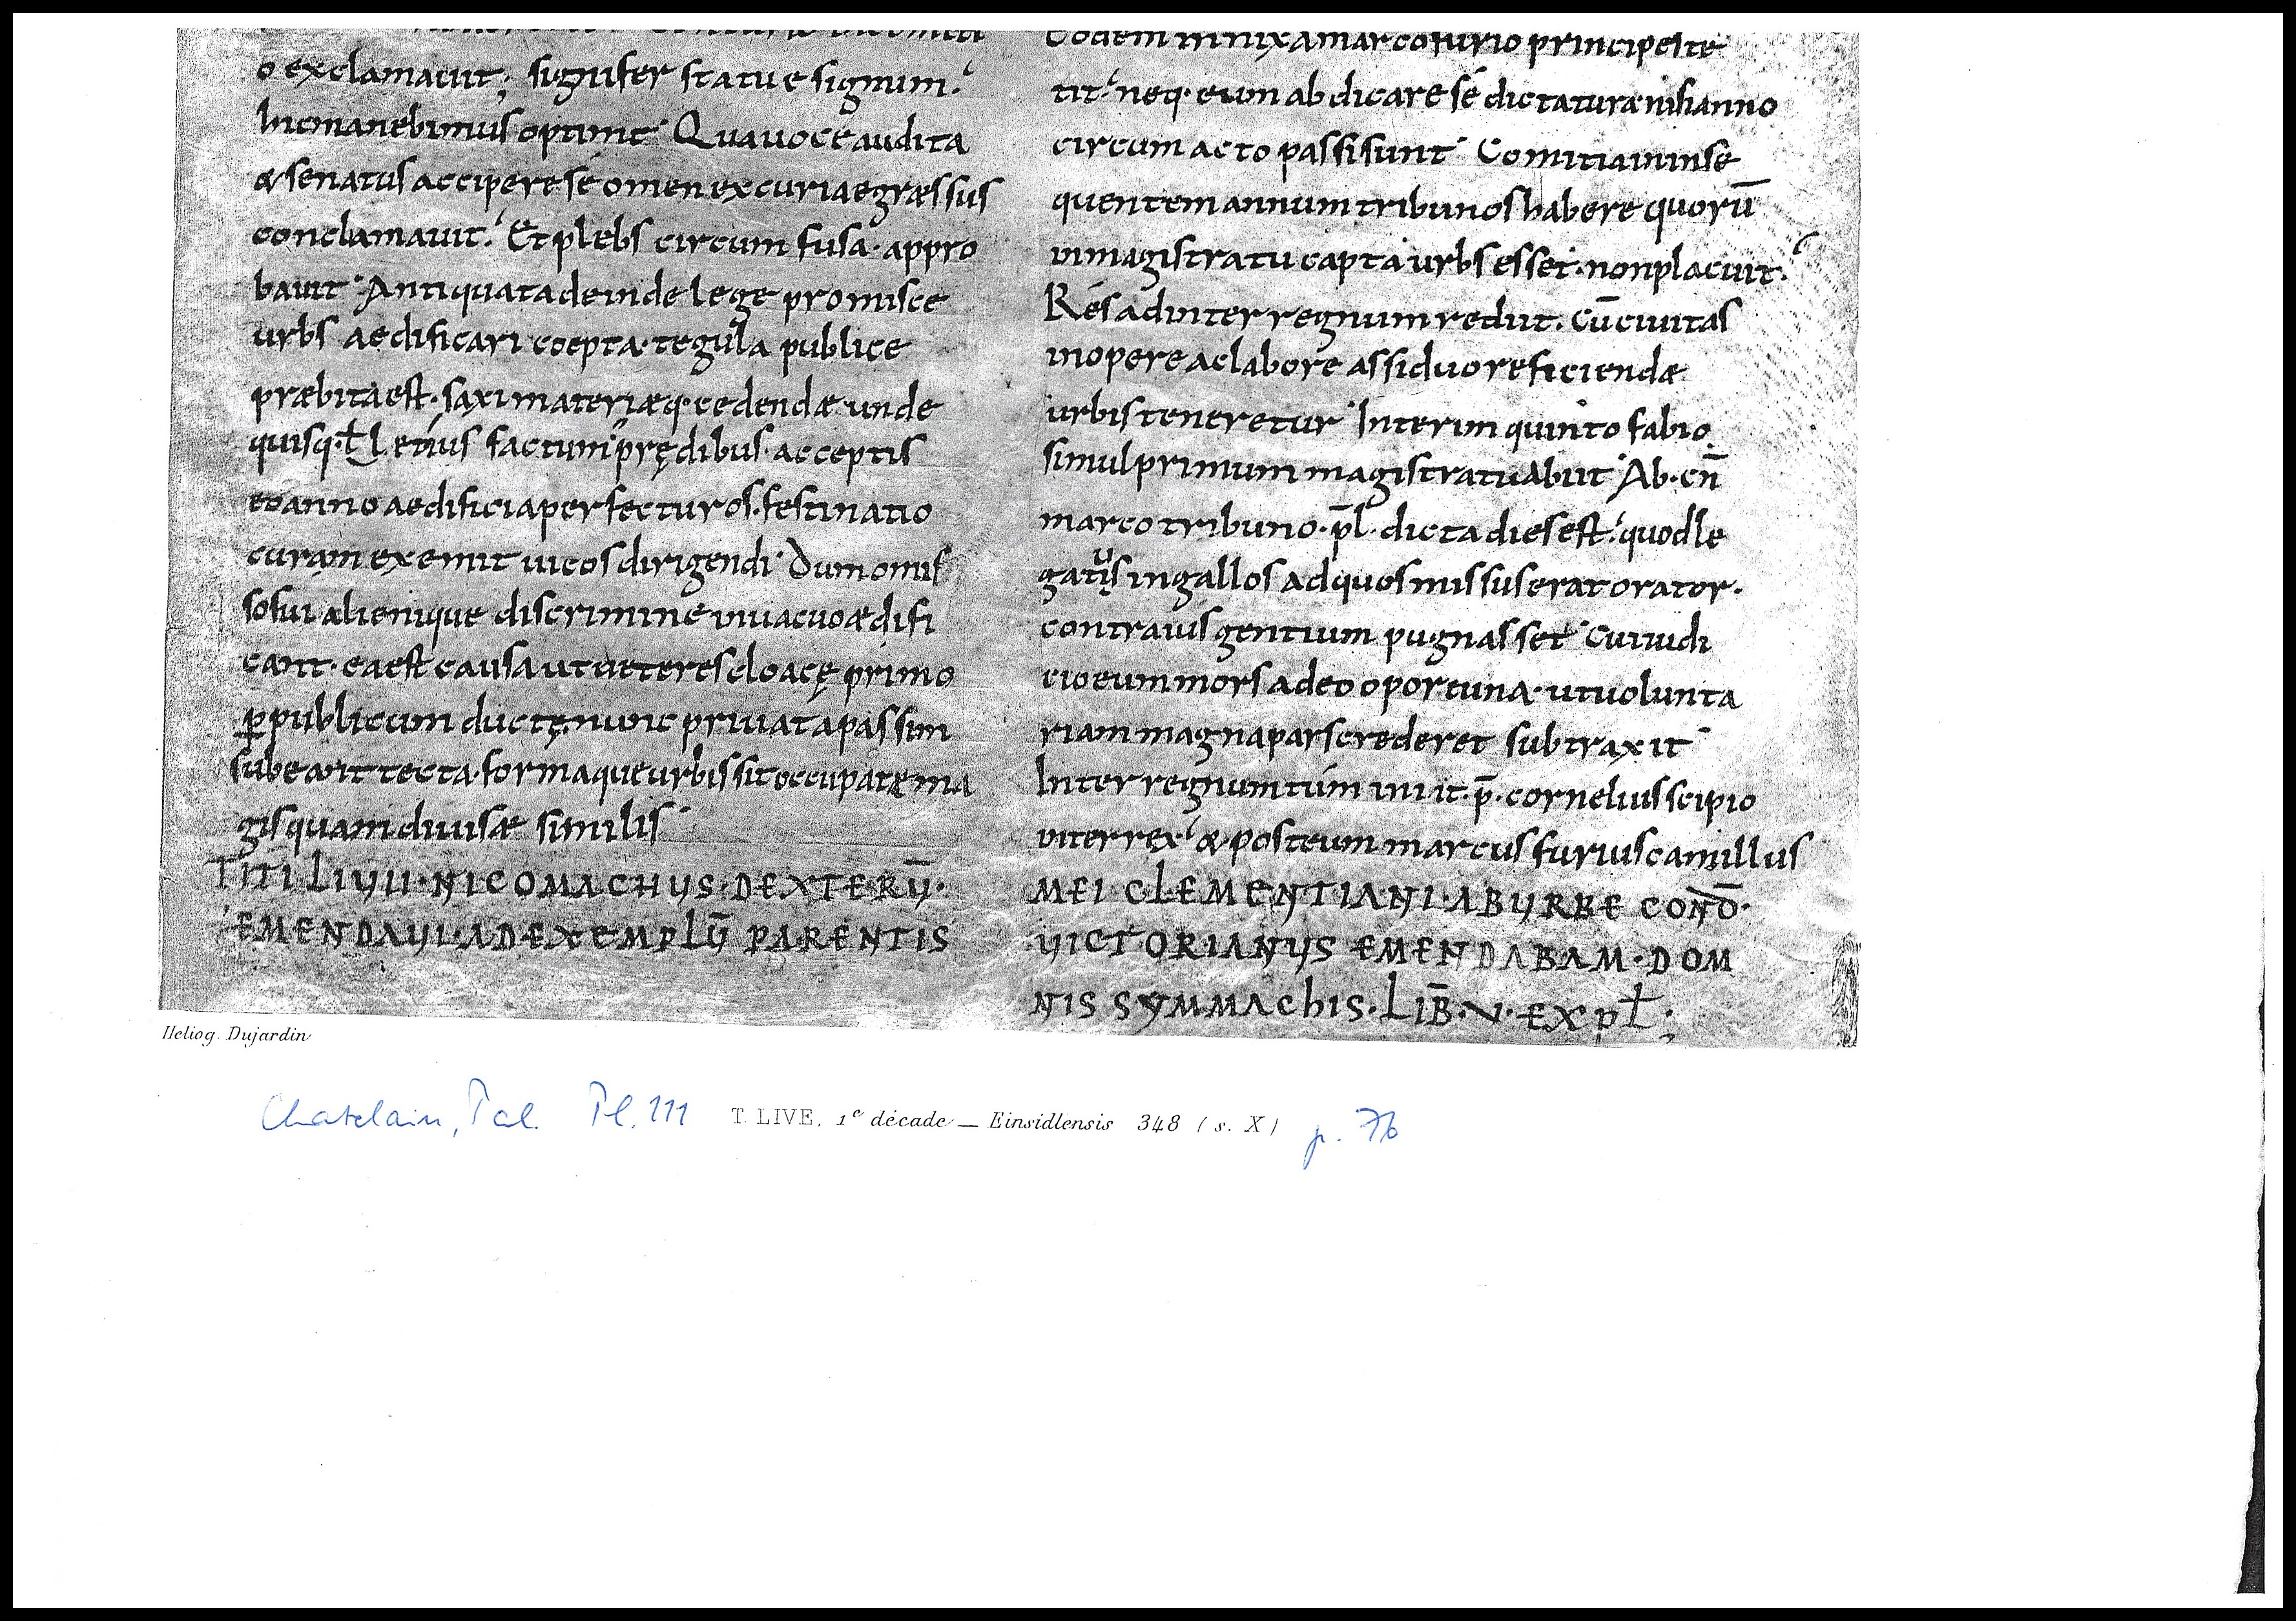 o exclamauit; signifer statue signum.
hic manebimus optime Qua uoce audita
& senatus accipere sé omen ex curia egræssus
conclamauit. Et plebs circum fusa · appro
bauit Antiquata deinde lege promisce
urbs aedificari coepta · tegula publice
præbita est · saxi materiæq· cedendæ unde
quisq· factum prędibus · acceptis
eo anno aedificia perfecturos · festinatio
curam exemit uicos dirigendi Dum omis
so sui alienique discrimine in uacuo ædifi
cant · ea est causa ut ueteres cloacę primo
ꝑ publicum ductę nunc priuata passim
subeant tecta · formaque urbis sit occupatę ma
gis quam diuisæ similis
TITI LIVII · NICOMACHVS · DEXTER V̄ ·
EMENDAVI · AD EXEMPLV̄ PARENTIS
eodem in nixa marco furio principe ste
tit · neq· eum abdicare sé dictaturæ nisi anno
circum acto passi sunt Comitia in inse
quentem annum tribunos habere quorū
in magistratu capta urbs esset · non placuit ·
Rés ad inter regnum rediit . cū ciuitas
in opere ac labore assiduo reficiendæ
urbis teneretur Interim quinto fabio
simul primum magistratu abiit Ab · cn̄
marco tribuno · p̄l · dicta dies est · quod le
gatus in gallos ad quos missus erat orator ·
contra ius gentium pugnasset Cui iudi
cio eum mors adeo oportuna · ut uolunta
riam magna pars crederet subtraxit
Inter regnum túm iniit · p̄ · cornelius scipio
inter rex & post eum marcus furius camillus
MEI CLEMENTIANI · AB VRBE COND̄ ·
VICTORIANVS EMENDABAM · DOM
NIS SYMMACHIS · LIB̄ · V · EXPL̄ ;
Heliog. Dujardin
Chatelain, Pal. Pl. 111 T. LIVE, 1e décade — Einsidlensis 348 (s. X) p. 76